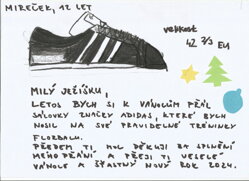 MIREČEK, 12 LET
velikost
42 2/3 EU
MILÝ JEŽÍŠKU,
LETOS BYCH SI K VÁNOCŮM PŘÁL
SÁLOVKY ZNAČKY ADIDAS, KTERÉ BYCH
NOSIL NA SVÉ PRAVIDELNÉ TRÉNINKY
FLORBALU.
PŘEDEM TI MOC DĚKUJI ZA SPLNĚNÍ
MÉHO PŘÁNÍ A PŘEJI TI VESELÉ
VÁNOCE A ŠŤASTNÝ NOVÝ ROK 2024.